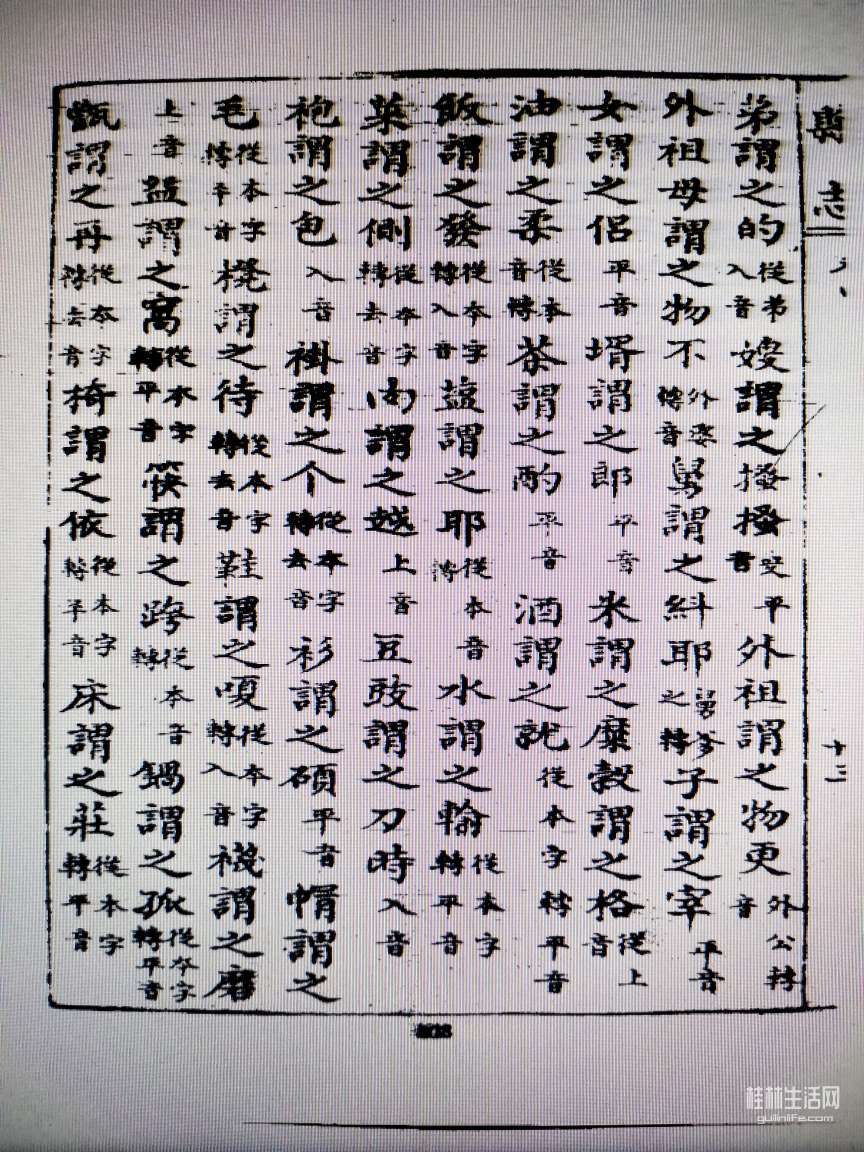 輿志
十三
弟謂之的從弟入音嫂謂之搔搔嫂平音外祖謂之物更外公轉音
外祖母謂之物不外婆轉音舅謂之糾耶舅爹之轉子謂之宰平音
女謂之侶平音壻謂之郎平音米謂之糜穀謂之格從上音
油謂之柔從本音轉茶謂之酌平音酒謂之就從本字轉平音
飯謂之發從本字轉入音盐謂之耶從本音轉水謂之輸從本字轉平音
菜謂之側從本字轉去音肉謂之越上音豆豉謂之刀時入音
袍謂之色入音褂謂之个從本字轉去音衫謂之碩平音帽謂之
毛從本字轉平音櫈謂之待從本字轉去音鞋謂之嗄從本字轉入音襪謂之磨
上音益謂之窩從本字轉平音筷謂之跨從本音轉鍋謂之孤從本字轉平音
甑謂之再從本字轉去音椅謂之依從本字轉平音床謂之莊從本字轉平音
桂林生活网
guilinlife.com